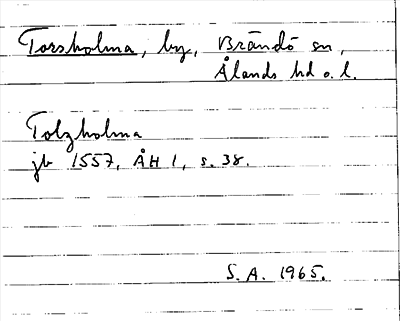 Torsholma, by, Brändö sn,
Ålands hd o. l.
Tolzholma
jb 1557, ÅH 1, s. 38.
S. A. 1965.